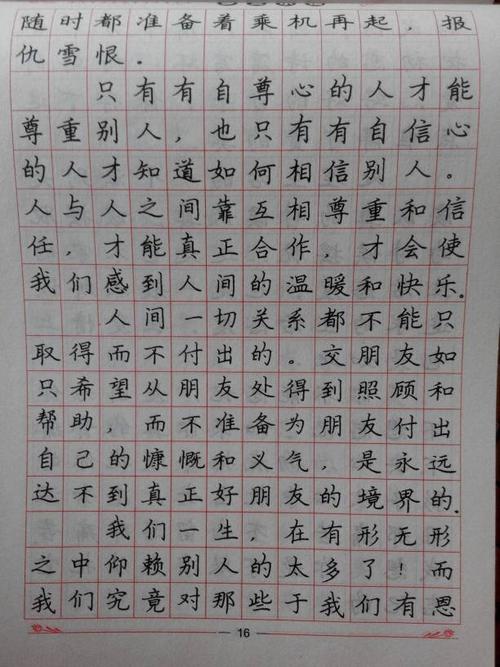 随时都准备着乘机再起，报
仇雪恨.
只有有自尊心的人才能
尊重别人，也只有有自信心
的人才知道如何相信别人。
人与人之间靠互相尊重和信
任，才能真正合作，才会使
我们感到人间的温暖和快乐.
人间一切关系都不能只
取得而不付出的。交朋友如
只希望从朋友处得到照顾和
帮助，而不准备为朋友付出
自己的慷慨和义气，是永远
达不到真正好朋友的境界的.
我们一生，在有形无形
之中仰赖别人的太多了！而
我们究竟对那些于我们有恩
16